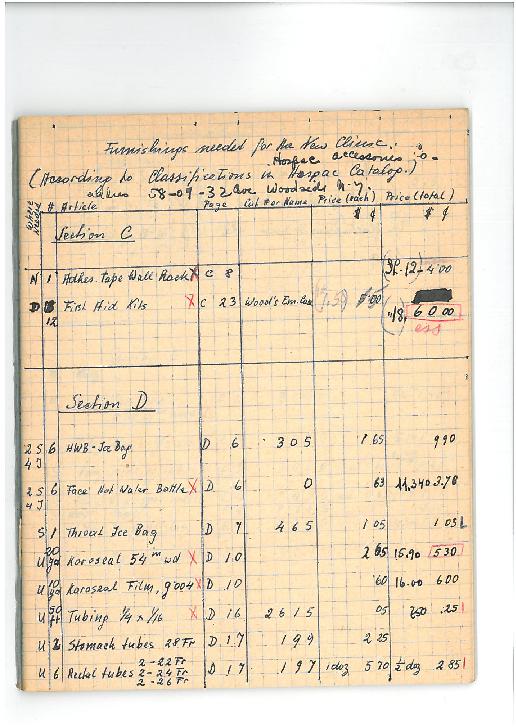 Furnishings needed for the New Clinic.
Hospac accessories
(According to Classifications in Hospac Catalog.)
address 58-09-32 Ave Woodside N.Y.
Where Needed # Article Page Cat # or Name Price (each) Price (total)
$ ¢ $ ¢
Section C
N 1 Adhes. Tape Wall Rack X C 8 12- 4.00
D 12 First Aid Kits X C 23 Wood's Em. Case 5.00 18. 60 00
ess
Section D
2 S 6 HWB-Ice Bag D 6 305 1 65 9 90
4 J
2 S 6 Face Hot Water Bottle X D 6 0 63 11.340 3.78
4 J
S 1 Throat Ice Bag D 7 465 1 05 1 05
U 20 yd Koroseal 54" wd X D 10 2 65 15.90 5 30
U 10 yd Koroseal Film, g004 X D 10 60 16.00 6 00
U 50 ft Tubing 1/4 x 1/16 X D 16 2615 05 250 .25
U 2 Stomach tubes 28 Fr D 17 199 2 25
U 6 Rectal tubes 2-22 Fr D 17 197 1 doz 5 70 1/2 doz 2 85
2-24 Fr
2-26 Fr